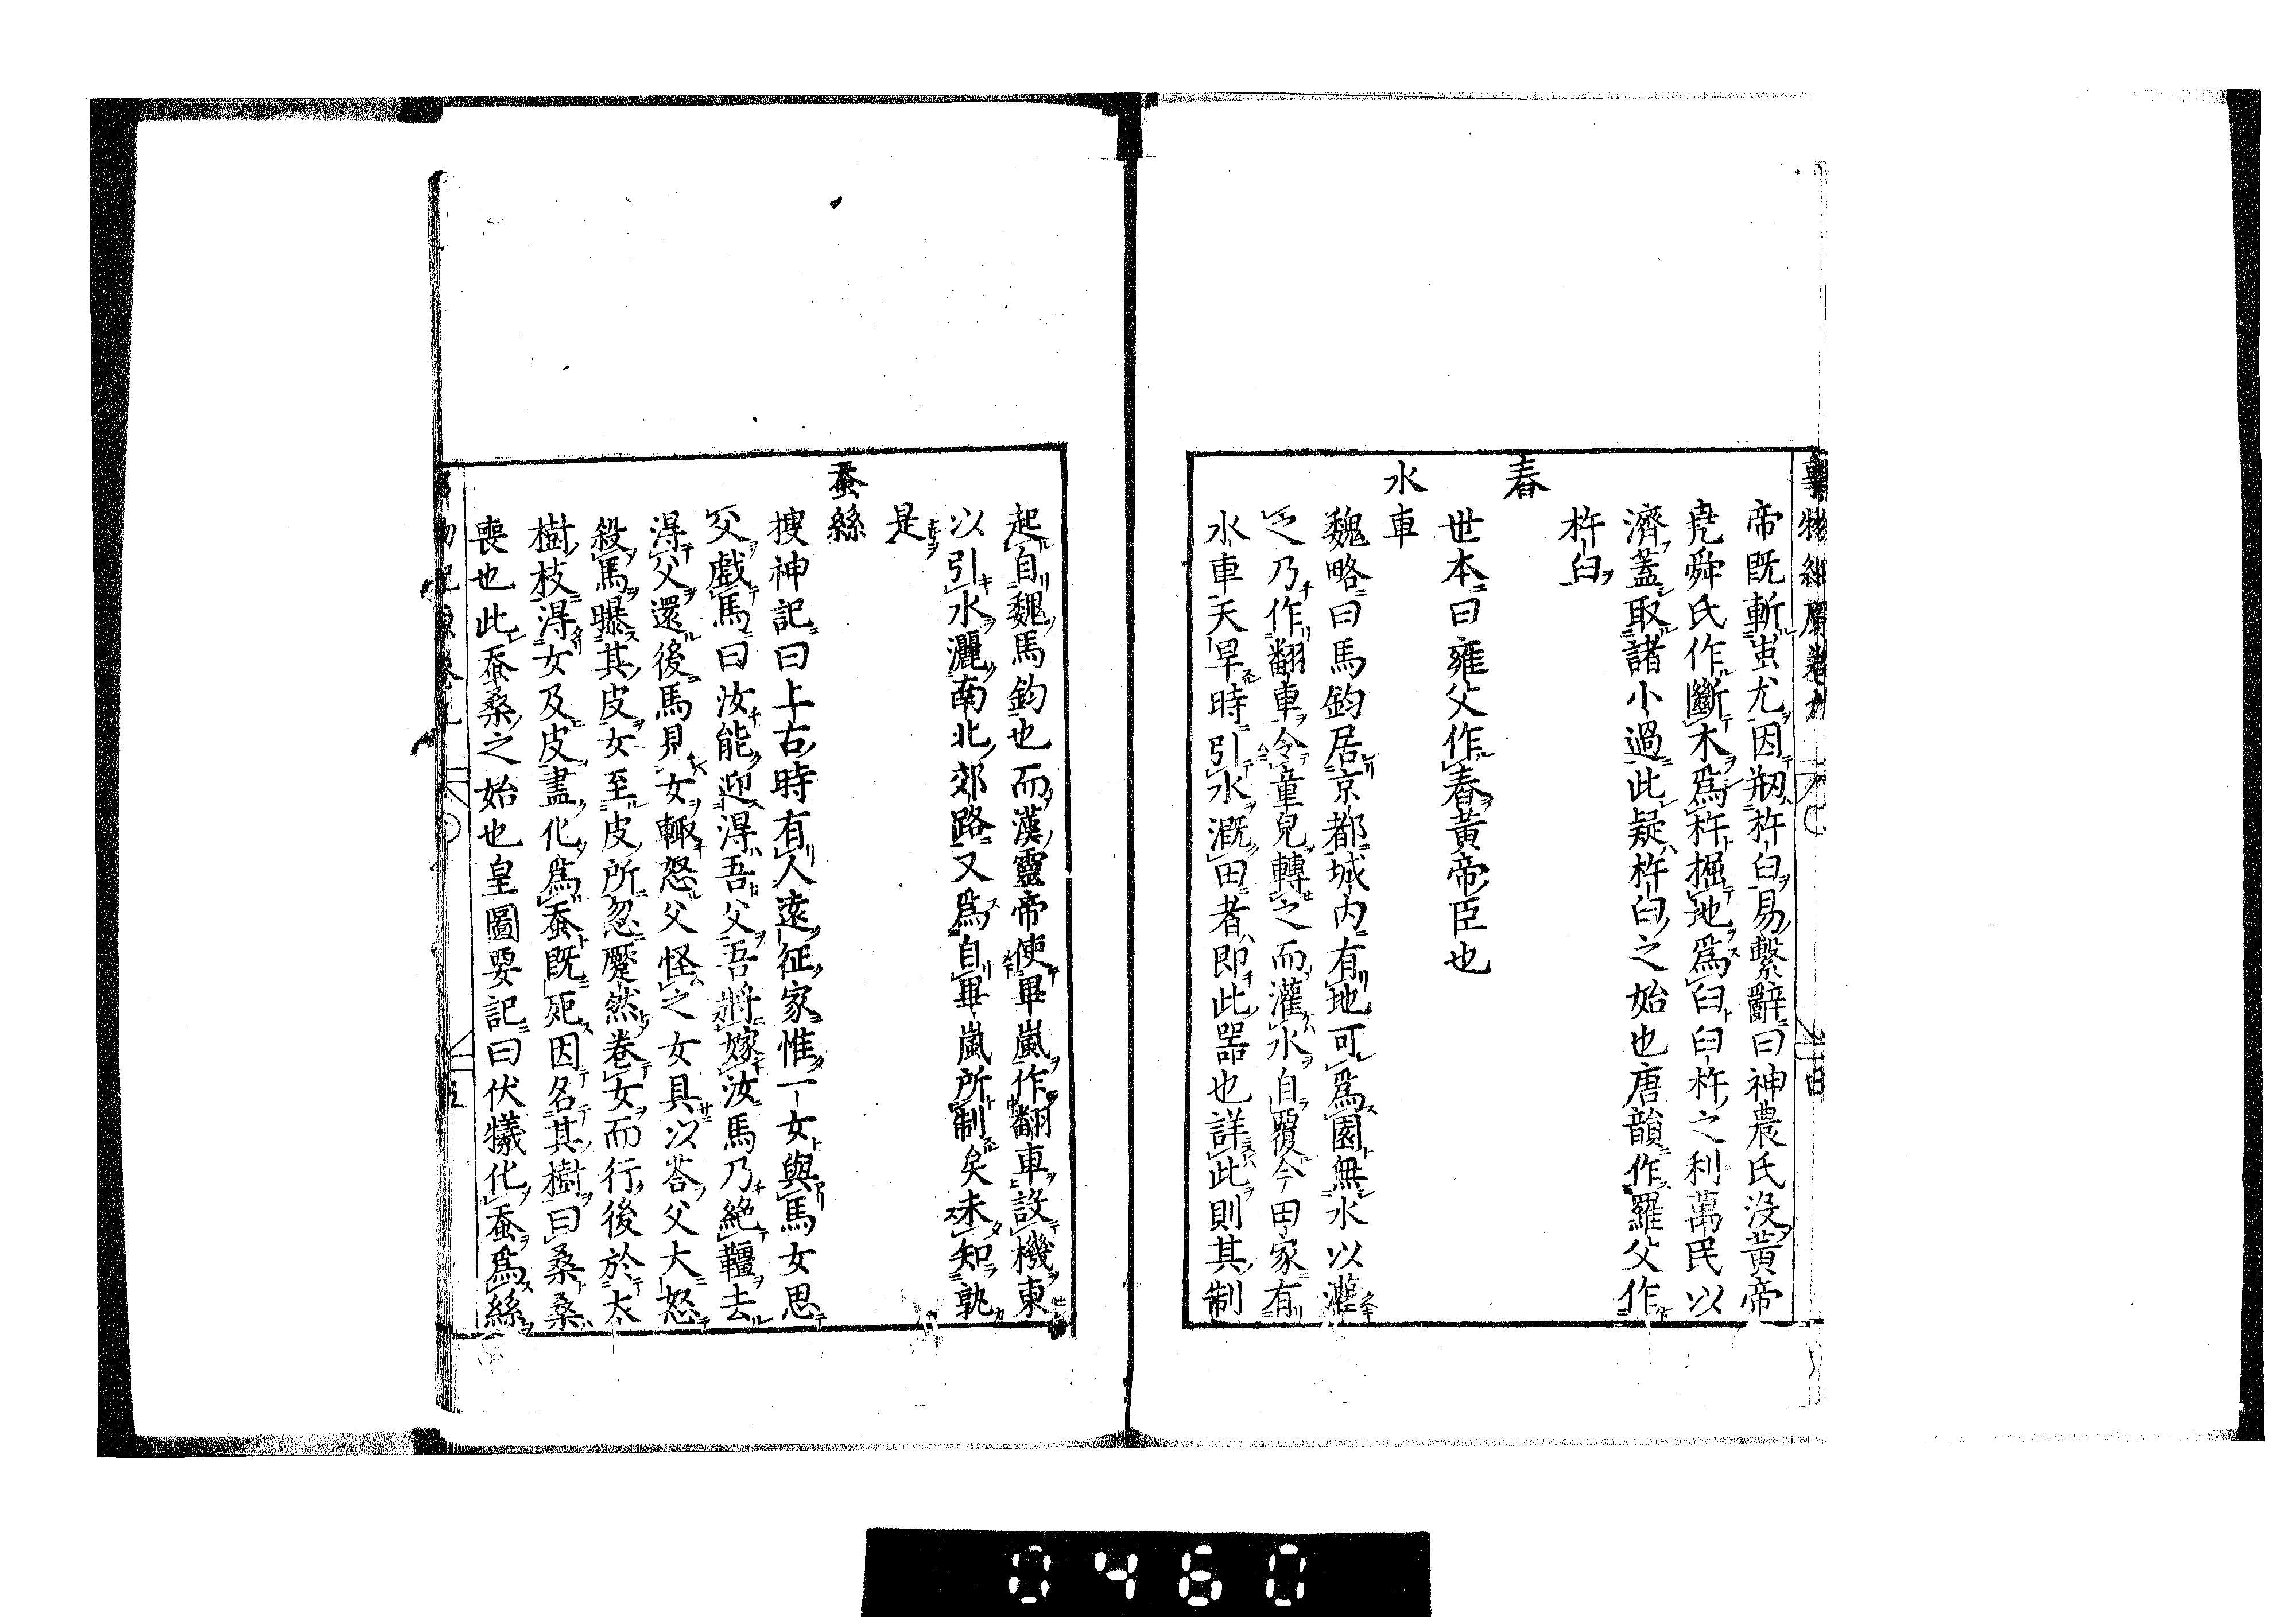 事物紀原卷九
帝既斬蚩尤因剏杵臼易繫辭曰神農氏没黄帝
堯舜氏作斷木爲杵掘地爲臼臼杵之利萬民以
濟蓋取諸小過此疑杵臼之始也唐韻作羅父作
杵臼
舂
世本曰雍父作舂黄帝臣也
水車
魏略曰馬鈞居京都城内有地可爲園無水以灌
之乃作翻車令童兒轉之而灌水自覆今田家有
水車天旱時引水溉田者即此噐也詳此則其制
起自魏馬鈞也而漢靈帝使畢嵐作翻車設機東
以引水灑南北郊路又爲自畢嵐所制矣未知孰
是
蚕絲
搜神記曰上古時有人遠征家惟一女與馬女思
父戲馬曰汝能迎淂吾父吾將嫁汝馬乃絶韁去
淂父還後馬見女輙怒父怪之女具以荅父大怒
殺馬曝其皮女至皮所忽蹷然卷女而行後於大
樹枝淂女及皮盡化爲蚕既死因名其樹曰桑桑
喪也此蚕桑之始也皇圖要記曰伏犠化蚕爲絲
0460